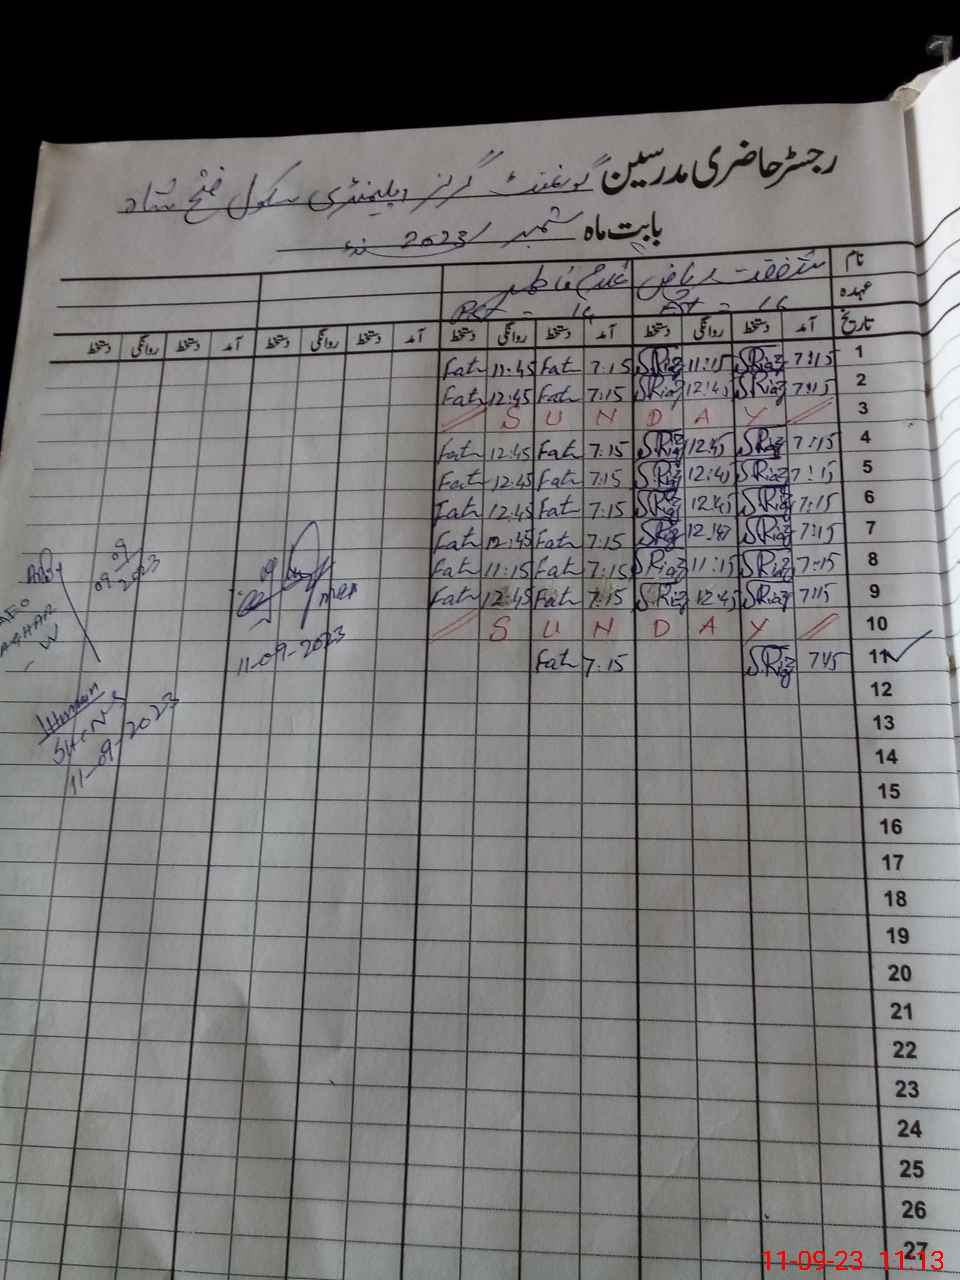 رجسٹر حاضری مدرسین گورنمنٹ گرلز ایلیمنٹری سکول فتح شاہ
بابت ماہ ستمبر 2023ء
نام شفقت ریاض غلام فاطمہ
عہدہ 14
تاریخ آمد دستخط روانگی دستخط آمد دستخط روانگی دستخط آمد دستخط روانگی دستخط آمد دستخط روانگی دستخط
1 7:15 SRiaz 11:15 SRiaz 7:15 Fat 11:45 Fat
2 7:15 SRiaz 12:45 SRiaz 7:15 Fat 12:45 Fat
3 SUNDAY
4 7:15 SRiaz 12:45 SRiaz 7:15 Fat 12:45 Fat
5 7:15 SRiaz 12:45 SRiaz 7:15 Fat 12:45 Fat
6 7:15 SRiaz 12:45 SRiaz 7:15 Fat 12:45 Fat
7 7:15 SRiaz 12:45 SRiaz 7:15 Fat 12:45 Fat
8 7:15 SRiaz 11:15 SRiaz 7:15 Fat 11:15 Fat
9 7:15 SRiaz 12:45 SRiaz 7:15 Fat 12:45 Fat
10 SUNDAY
11 7:15 SRiaz 7:15 Fat
12
13
14
15
16
17
18
19
20
21
22
23
24
25
26
27
09-09-2023
AEO
W
MEA
11-09-2023
11-09-2023
11-09-23 11:13